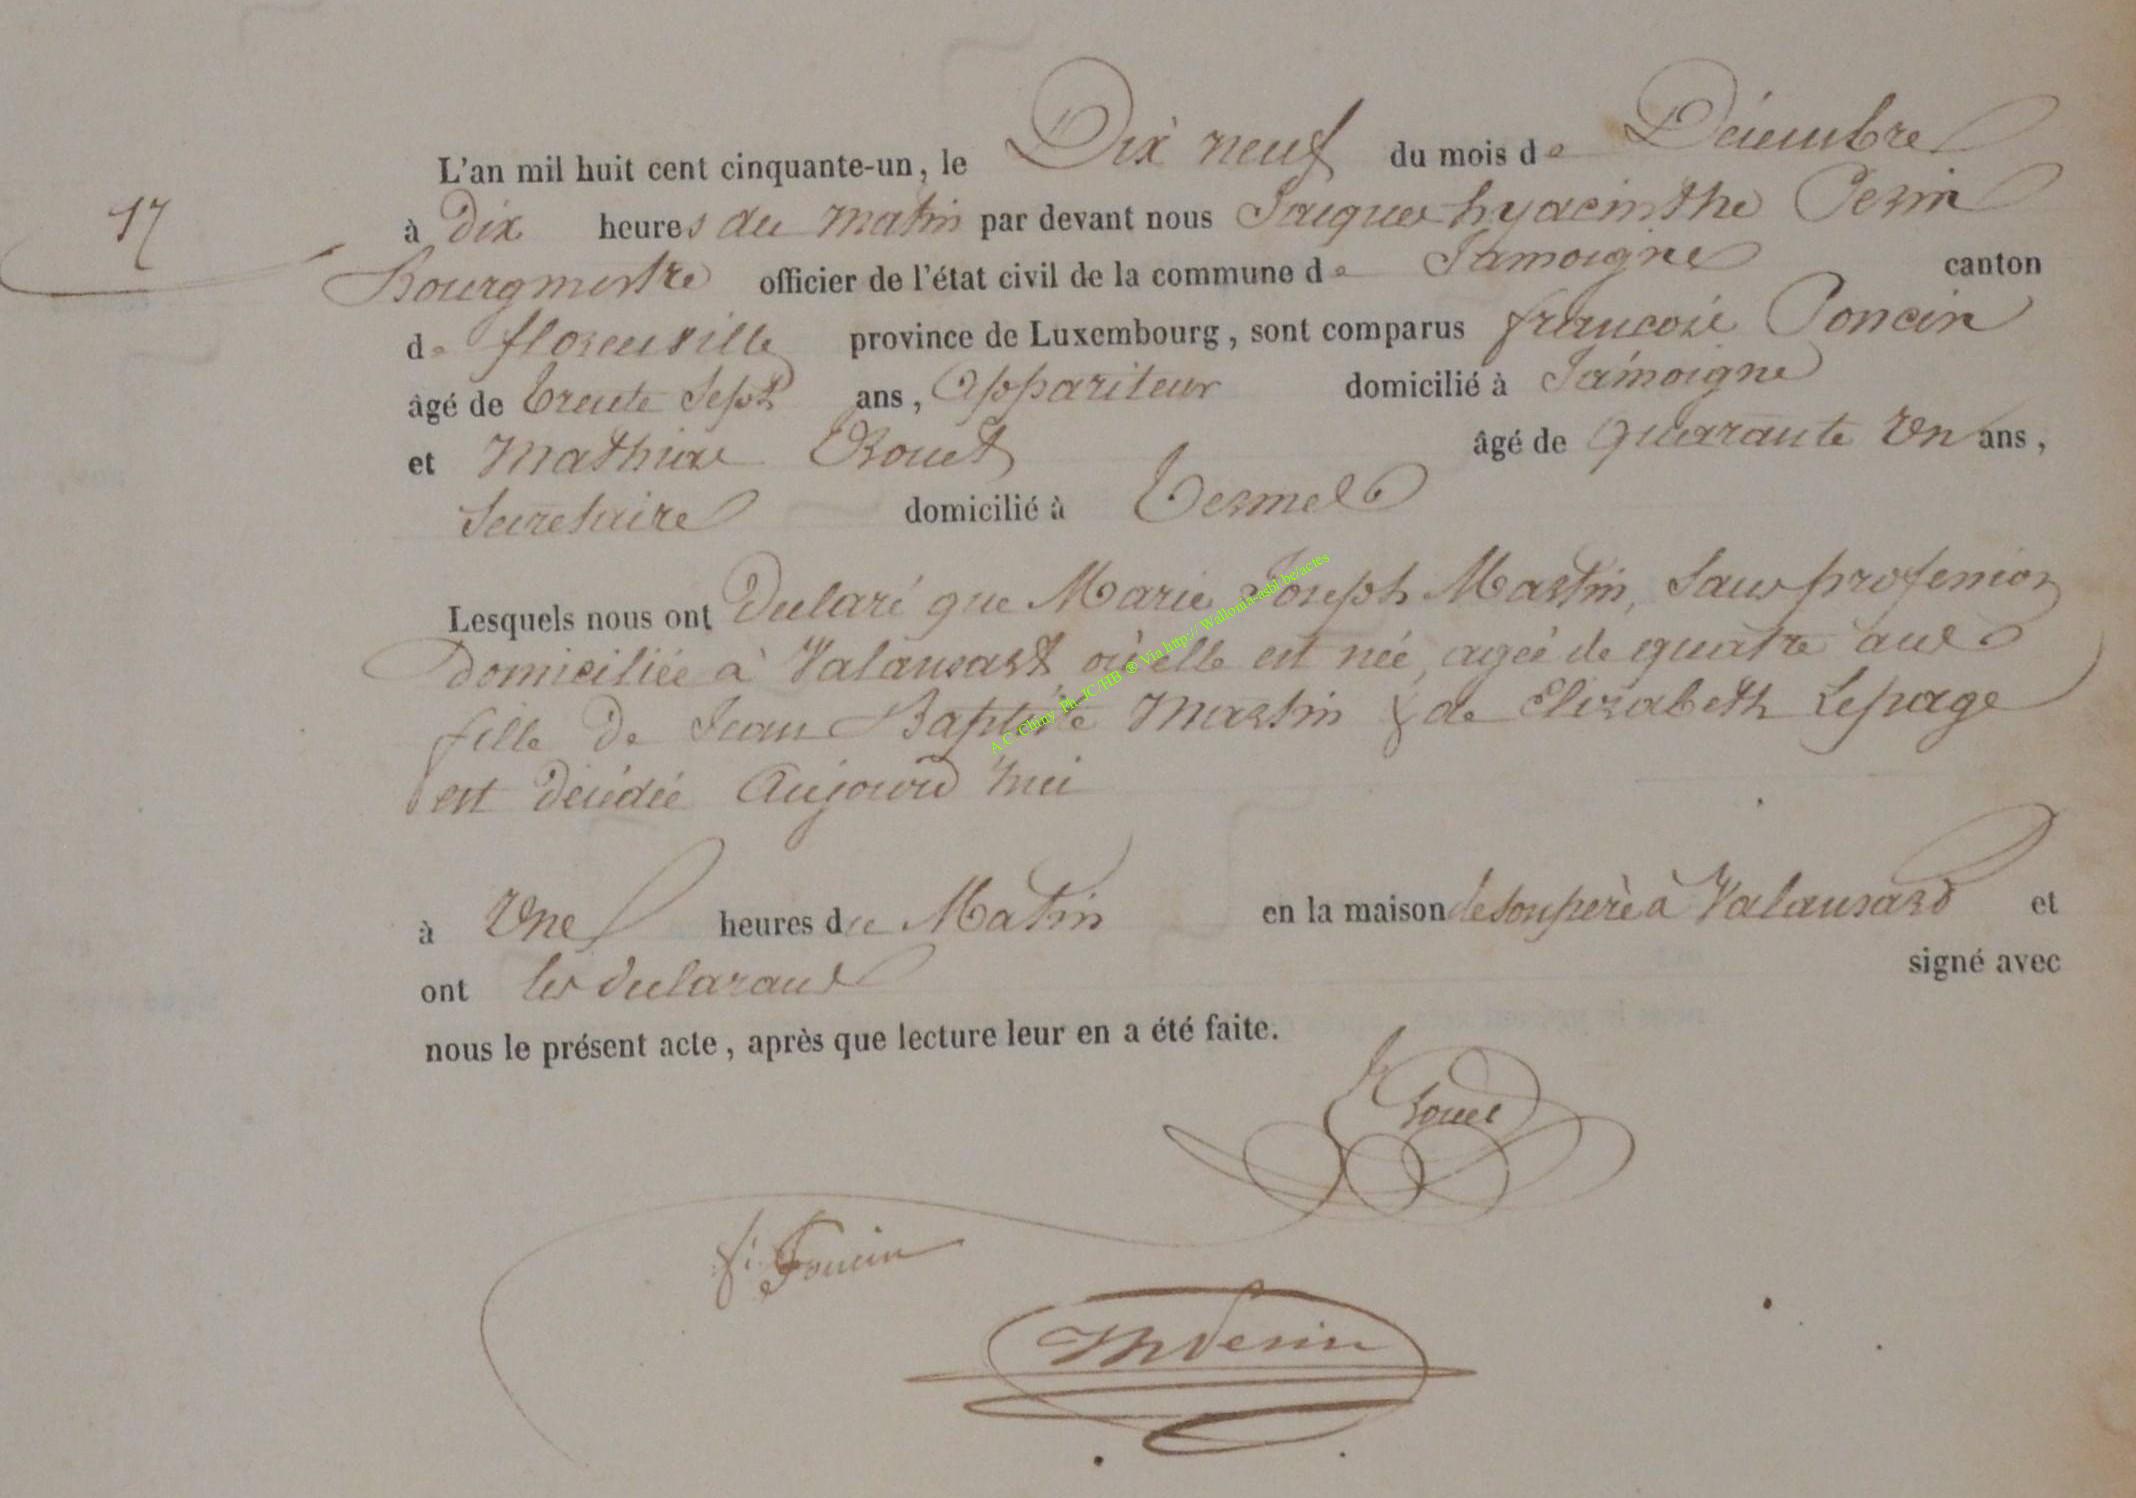 17
L'an mil huit cent cinquante-un, le Dix neuf du mois de Décembre
à Dix heures du matin par devant nous Jacques hyacinthe Perin
Bourgmestre officier de l'état civil de la commune de Jamoigne canton
de florenville province de Luxembourg, sont comparus francois Poncin
âgé de trente Sept ans, Appariteur domicilié à Jamoigne
et Mathieu Rouet âgé de quarante Un ans,
Secretaire domicilié à Termes
Lesquels nous ont Declaré que Marie Joseph Martin, Sans profession
Domiciliée à Valansart où elle est née, agée de quatre ans
fille de Jean Baptiste Martin & de Elisabeth Lepage
est décédée Aujourd'hui
à Une heures du Matin en la maison de son père à Valansard et
ont les declarans signé avec
nous le présent acte, après que lecture leur en a été faite.
Rouet
f. Poncin
Perin
A.C. Chiny Ph. JC/HB ® Via http://Wallonia-asbl.be/actes